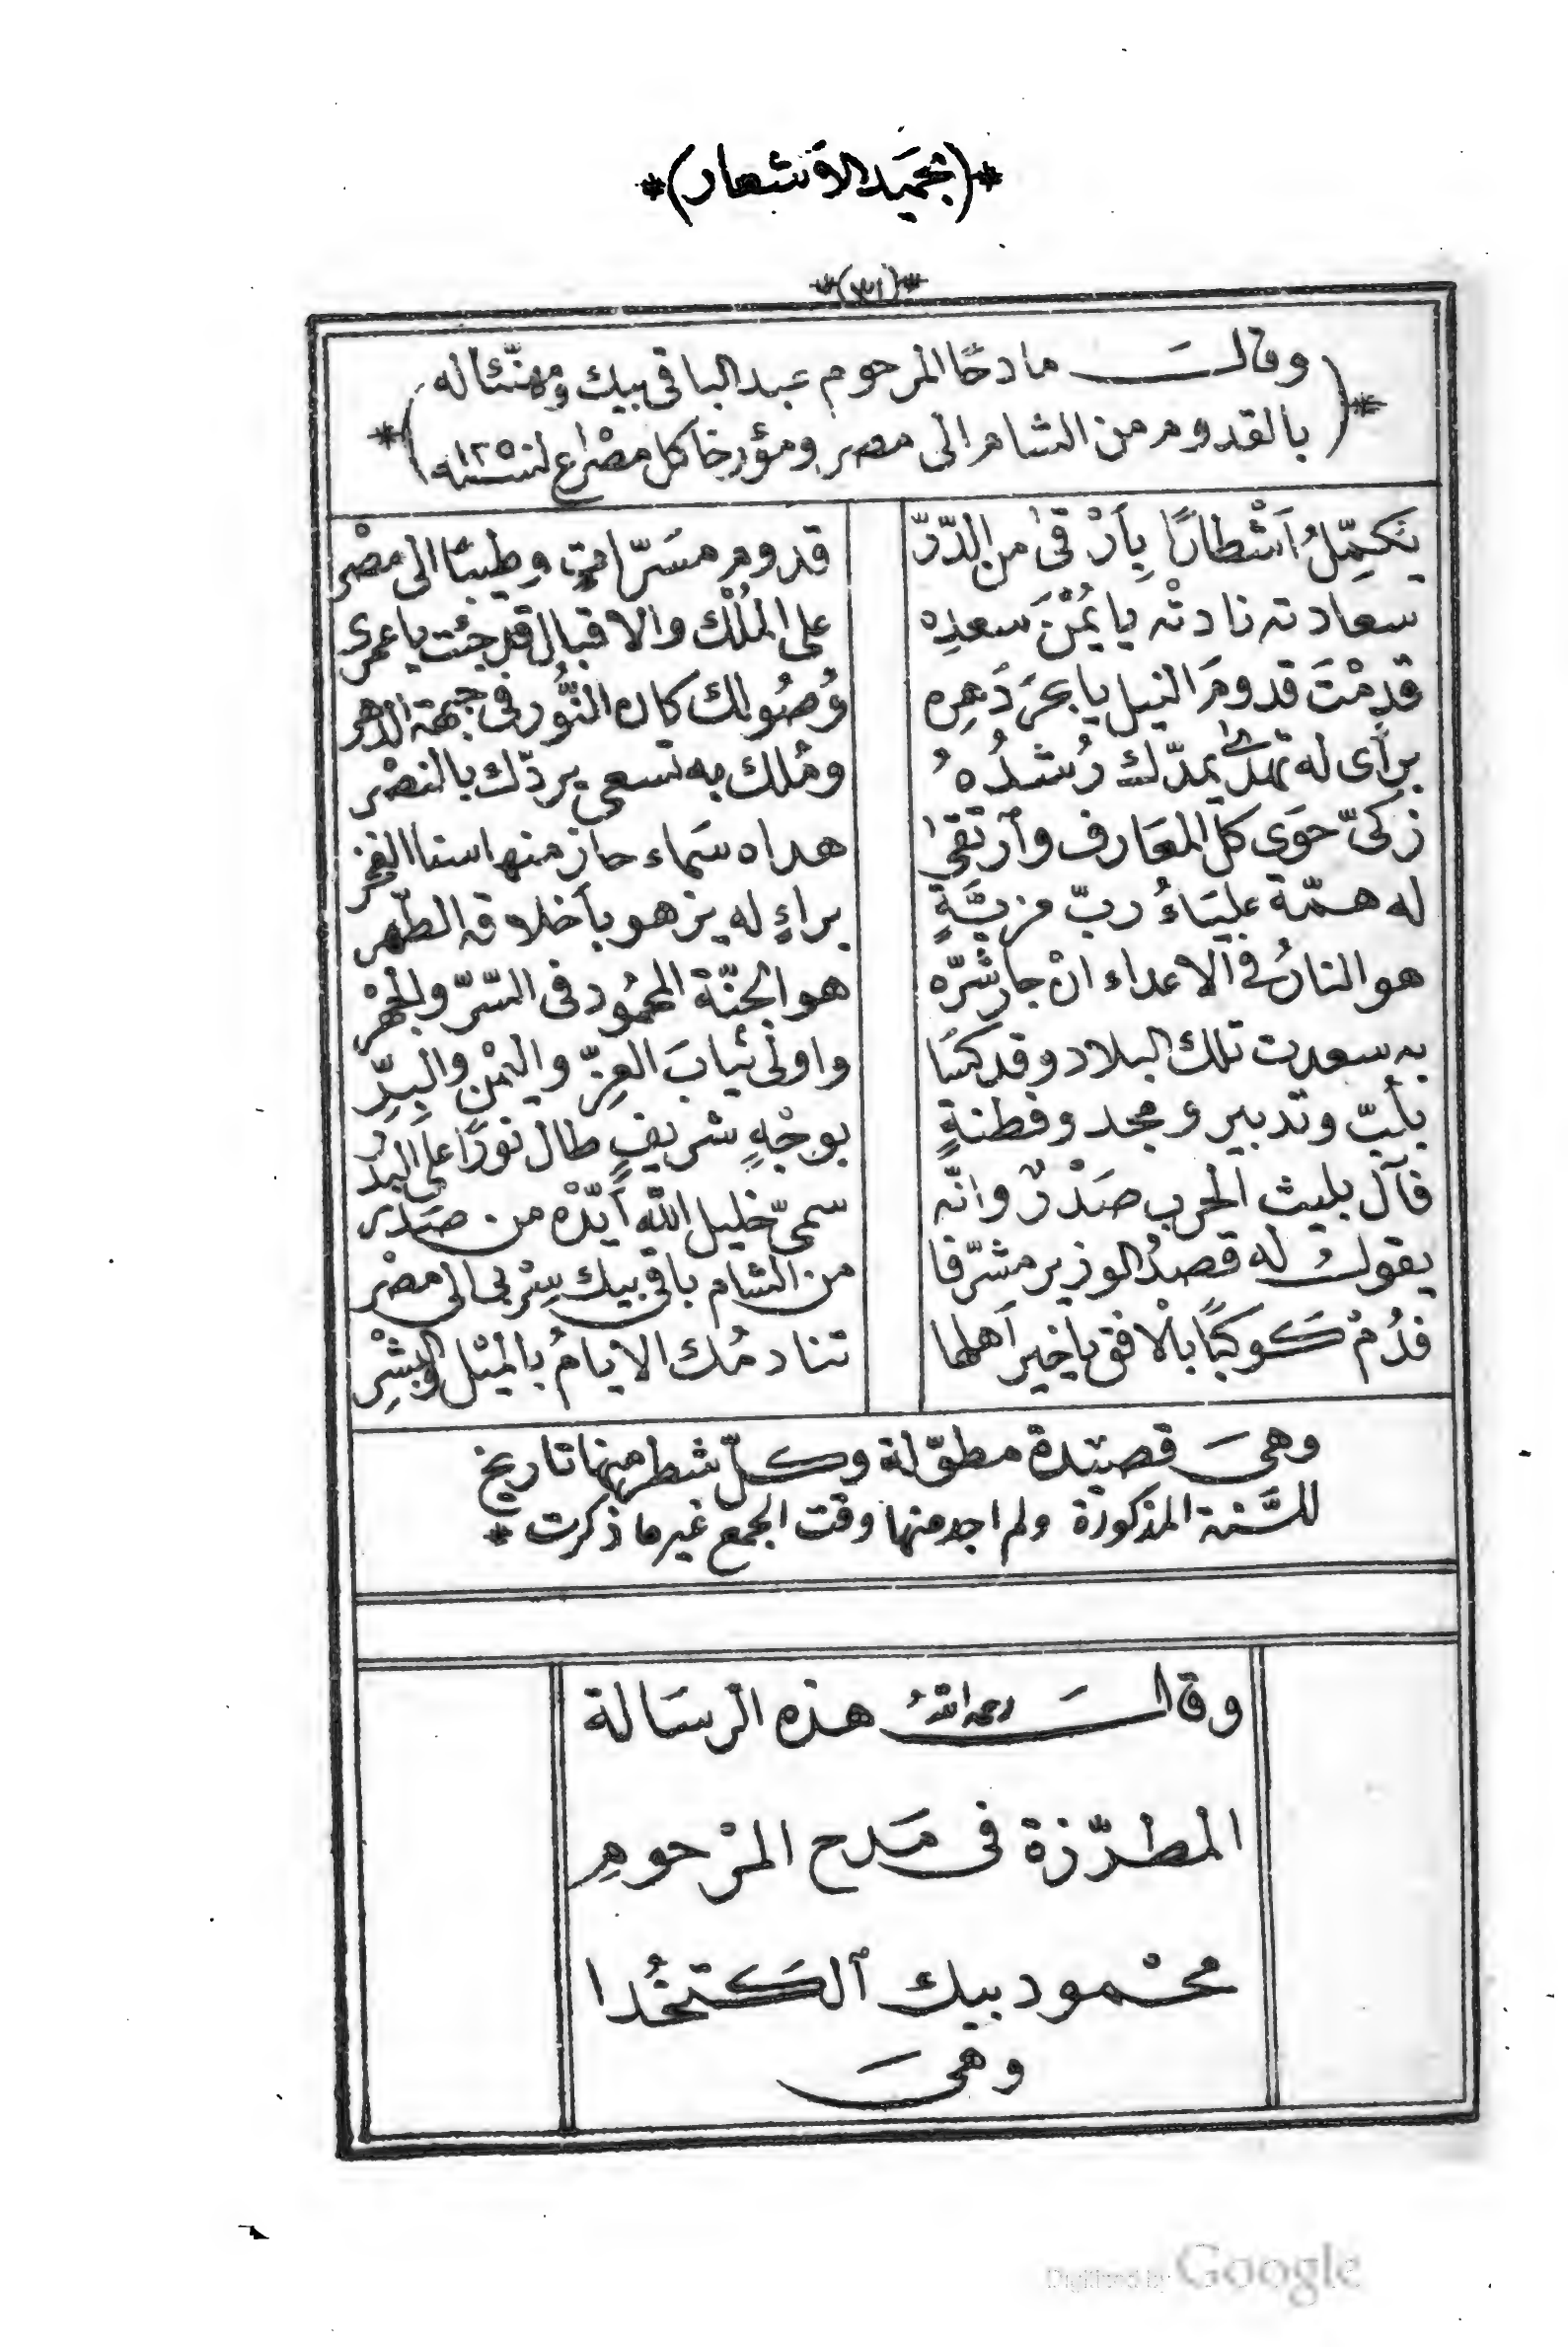 *(تجميد الاشعار)*
*(٣١)*
وقال مادحًا المرحوم عبد الباقى بيك ومهنّئا له
بالقدوم من الشام الى مصر ومؤرخا كل مصْراع لنسنة ١٢٥٠
يكمِّلُ اَشْطارًا بِأرْقىٰ من الدّرّ قدوم مسَرّات وطيبًا الى مصْر
سعادته نادتْه يا يُمْنَ سعدِه على المُلْك والاقبال قد جئت يا عمرى
قدِمْتَ قدومَ النيل يا بحرَ دَهرِه وُصُولك كان النُّور فى جبهة الدهر
برأى له تهدىٰ يمدّك رُشدُهُ ومُلك به تسعى يردّك بالنصْر
زكىّ حوَى كلّ المعَارف وٱرتقىٰ هداه سَماء حاز منها سنا الفخر
له همّة عليَاءُ ربّ مزيَّةٍ براءٍ له يزهو بأخلاقه الطّهر
هو النارُ فى الاعداء انْ جار شرّه هو الجنّة المحمُود فى السّرّ والجهْر
به سعدت تلك البلاد وقد كسَا واولىٰ ثيابَ العِزّ واليمْنِ والبِرِّ
بلُبّ وتدبير ومجد وفطنةٍ بوجْهٍ شريفٍ طال نورًا على البدْر
فآل بليث الحرب صَدْرٌ وانّه سمىّ خليل اللّه أيّدْه من صَدْر
يقولُ له قصدُ الوزير مشرّفا من الشام باقى بيك سِرْ بى الى مصْر
فدُمْ كوكبًا بالْافق يا خير اَهلها تنادمُك الايامُ بالميْل والبِشْرِ
وهىَ قصيْدة مطوّلة وكلّ شطر منها تاريخ
للسَّنة المذكورة ولم اجد منها وقت الجمع غير ما ذكرت *
وقالَ رحمه اللّهُ هذه الرسَالة
المطرّزة فى مَدح المرْحومِ
محْمود بيك ٱلكَتخُدا
وهىَ
Digitized by Google